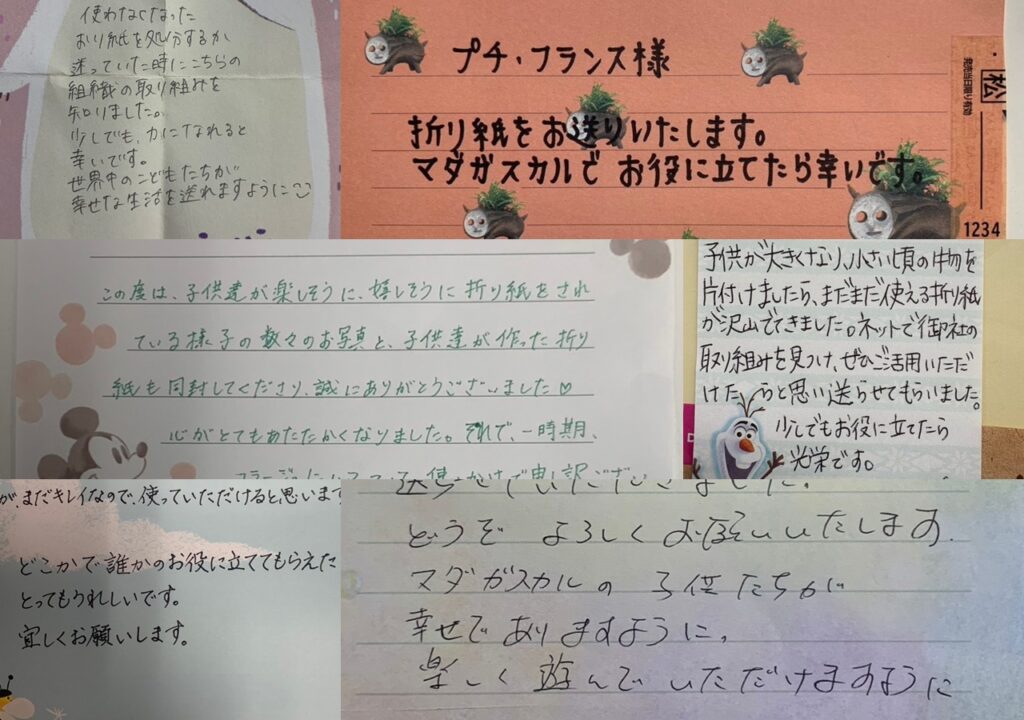 使わなくなった
おり紙を処分するか
迷っていた時にこちらの
組織の取り組みを
知りました。
少しでも、力になれると
幸いです。
世界中のこどもたちが
幸せな生活を送れますように
プチ・フランス様
折り紙をお送りいたします。
マダガスカルで お役に立てたら幸いです。
松
発売当日限り有効
1234
この度は、子供達が楽しそうに、嬉しそうに折り紙をされ
ている様子の数々のお写真と、子供達が作った折り
紙も同封してくださり、誠にありがとうございました♡
心がとてもあたたかくなりました。それで、一時期、
子供が大きくなり、小さい頃の物を
片付けましたら、まだまだ使える折り紙
が沢山でてきました。ネットで御社の
取り組みを見つけ、ぜひご活用いただ
けたらと思い送らせてもらいました。
少しでもお役に立てたら
光栄です。
が、まだキレイなので、使っていただけると思います
どこかで誰かのお役に立ててもらえた
とってもうれしいです。
宜しくお願いします。
どうぞ よろしくお願いいたします.
マダガスカルの 子供たちが
幸せでありますように、
楽しく遊んでいただけますように